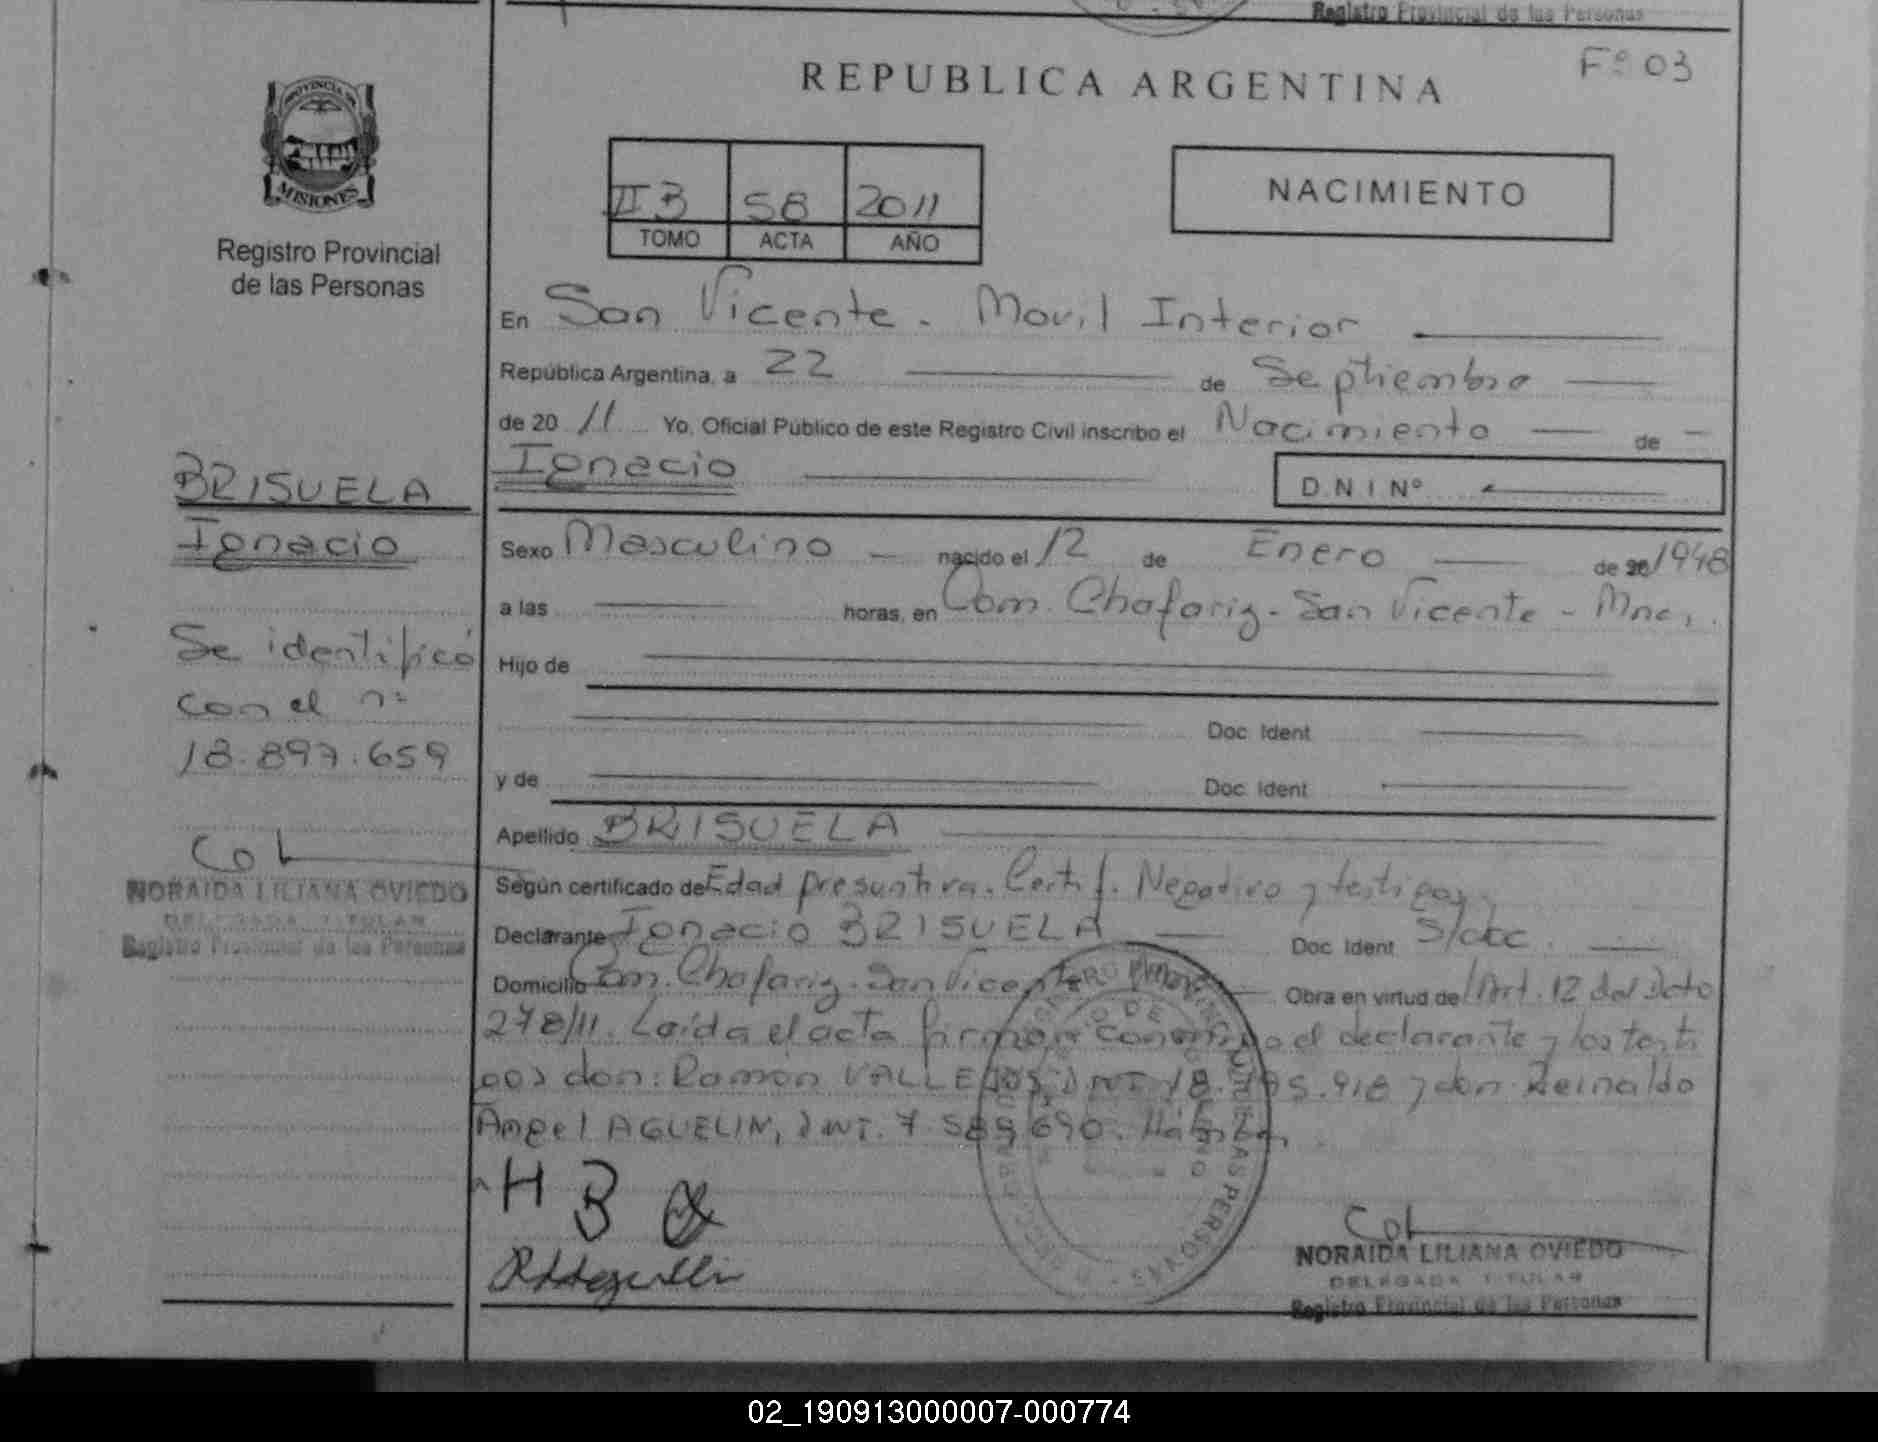 Registro Provincial de las Personas
Fº 03
REPUBLICA ARGENTINA
PROVINCIA DE
MISIONES
Registro Provincial
de las Personas
II B 58 2011
TOMO ACTA AÑO
NACIMIENTO
En San Vicente - Movil Interior
República Argentina, a 22 de Septiembre
de 20 11 Yo, Oficial Público de este Registro Civil inscribo el Nacimiento de
Ignacio
D.N.I Nº
Sexo Masculino nacido el 12 de Enero de 20 1948
a las horas, en Com. Chafariz - San Vicente - Mnes.
Hijo de
Doc. Ident
y de Doc. Ident
Apellido BRISUELA
Según certificado de Edad presuntiva. Certif. Negativo y testigos.
Declarante Ignacio BRISUELA Doc. Ident S/doc.
Domicilio Com. Chafariz - San Vicente Obra en virtud de Art. 12 del Dcto
278/11. Leída el acta firman conmigo el declarante y los testi
gos don: Ramón VALLEJOS, DNI 18. 918 y don Reinaldo
Angel AGUELIN, DNI. 7.589.690.
H B
Col
NORAIDA LILIANA OVIEDO
DELEGADA TITULAR
Registro Provincial de las Personas
BRISUELA
Ignacio
Se identificó
con el nº
18.897.659
Col
NORAIDA LILIANA OVIEDO
DELEGADA TITULAR
Registro Provincial de las Personas
02_190913000007-000774